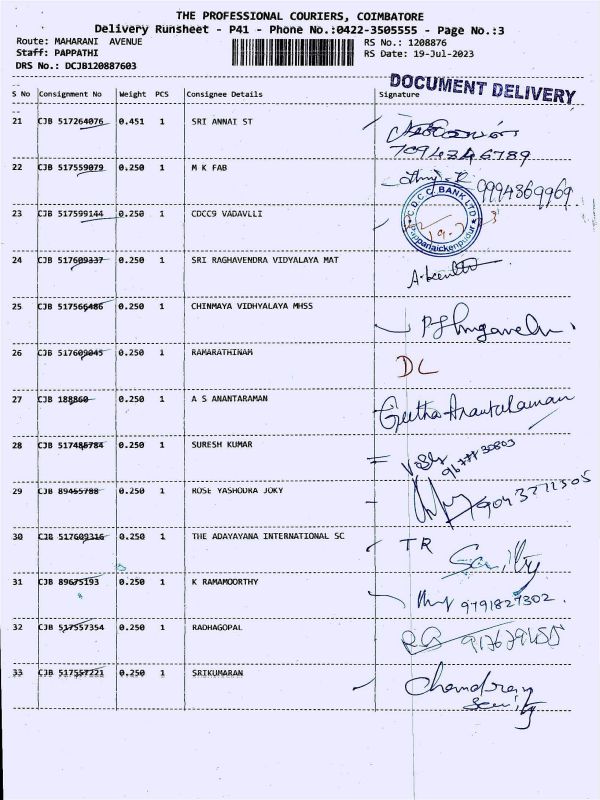 THE PROFESSIONAL COURIERS, COIMBATORE
Delivery Runsheet - P41 - Phone No.:0422-3505555 - Page No.:3
Route: MAHARANI AVENUE
RS No.: 1208876
Staff: PAPPATHI
RS Date: 19-Jul-2023
DRS No.: DCJB120887603
DOCUMENT DELIVERY
S No Consignment No Weight PCS Consignee Details Signature
21 CJB 517264076 0.451 1 SRI ANNAI ST
7094346789
22 CJB 517559079 0.250 1 M K FAB
9994369969
23 CJB 517599144 0.250 1 CDCC9 VADAVLLI
C.D.C.C. BANK LTD
Pappanaickenpudur
24 CJB 517609337 0.250 1 SRI RAGHAVENDRA VIDYALAYA MAT
25 CJB 517566486 0.250 1 CHINMAYA VIDHYALAYA MHSS
26 CJB 517609045 0.250 1 RAMARATHINAM
DL
27 CJB 188860 0.250 1 A S ANANTARAMAN
Geetha Anantaraman
28 CJB 517485784 0.250 1 SURESH KUMAR
29 CJB 89455788 0.250 1 ROSE YASHODRA JOKY
30 CJB 517609316 0.250 1 THE ADAYAYANA INTERNATIONAL SC
TR
31 CJB 89675193 0.250 1 K RAMAMOORTHY
9791827302
32 CJB 517557354 0.250 1 RADHAGOPAL
33 CJB 517557221 0.250 1 SRIKUMARAN
Chandran